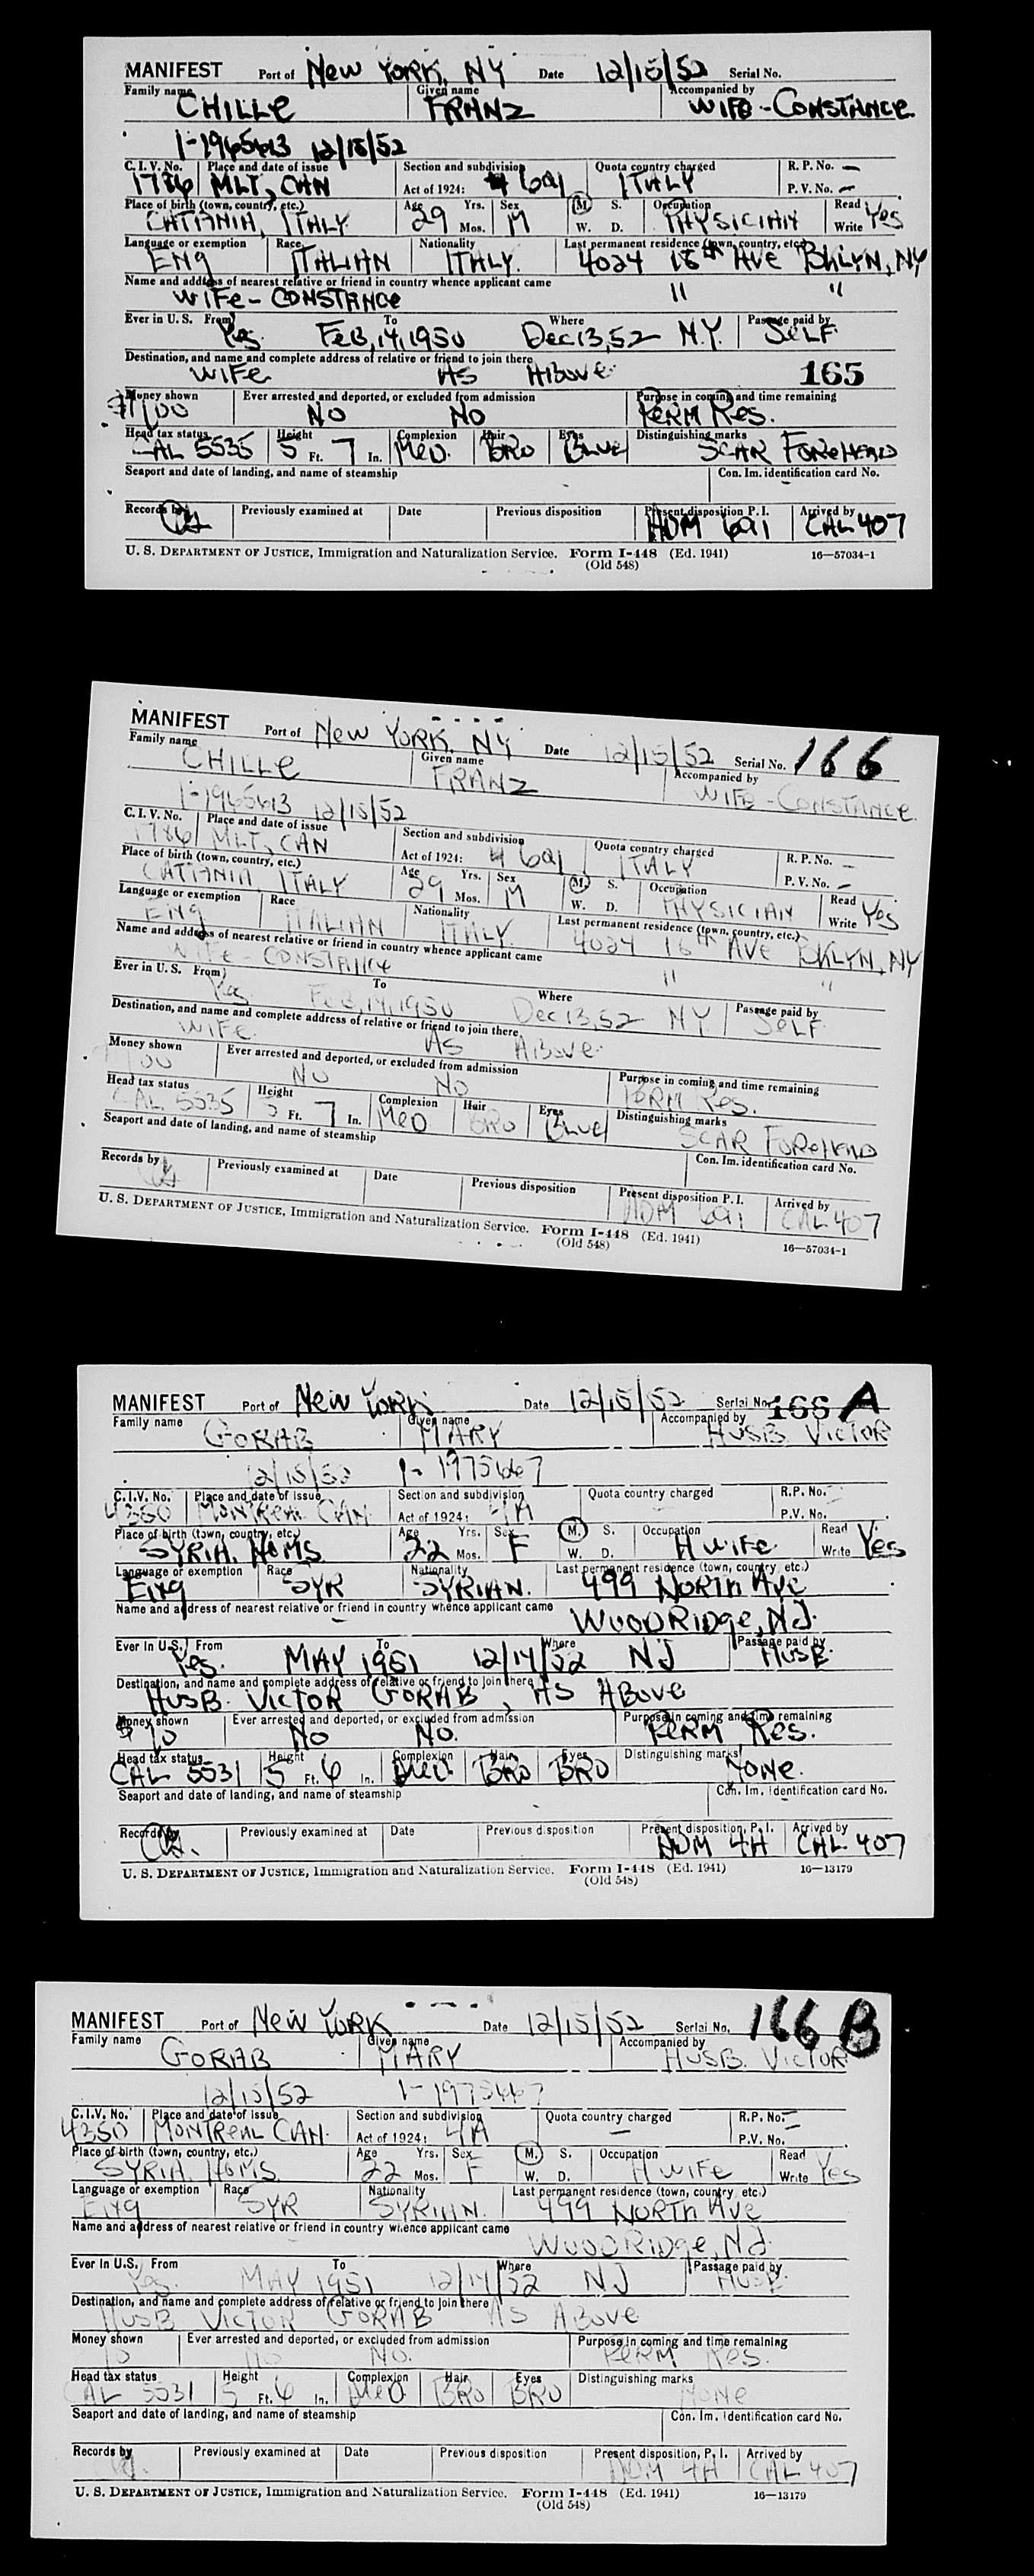 MANIFEST Port of New York, NY Date 12/15/52 Serial No.
Family name Given name Accompanied by
CHILLE FRANZ WIFE - CONSTANCE
1-1965613 12/15/52
C. I. V. No. Place and date of issue Section and subdivision Quota country charged R. P. No. —
1786 MLT, CAN Act of 1924: 4 6a1 ITALY P. V. No. —
Place of birth (town, country, etc.) Age Yrs. Sex M. S. Occupation Read
CATANIA, ITALY 29 Mos. M W. D. PHYSICIAN Write Yes
Language or exemption Race Nationality Last permanent residence (town, country, etc.)
ENG ITALIAN ITALY. 4024 15th AVE BKLYN, NY
Name and address of nearest relative or friend in country whence applicant came
WIFE - CONSTANCE " "
Ever in U. S. From To Where Passage paid by
Yes. FEB, 14, 1950 Dec 13, 52 N.Y. SELF
Destination, and name and complete address of relative or friend to join there
WIFE AS ABOVE. 165
Money shown Ever arrested and deported, or excluded from admission Purpose in coming and time remaining
$100 NO NO PERM RES.
Head tax status Height Complexion Hair Eyes Distinguishing marks
CAL 5535 5 Ft. 7 In. MED. BRO BLUE SCAR FOREHEAD
Seaport and date of landing, and name of steamship Con. Im. identification card No.
Records by Previously examined at Date Previous disposition Present disposition P. I. Arrived by
ADM 6a1 CAL 407
U. S. DEPARTMENT OF JUSTICE, Immigration and Naturalization Service. Form I-448 (Ed. 1941) 16—57034-1
(Old 548)
MANIFEST Port of New York, NY Date 12/15/52 Serial No. 166
Family name Given name Accompanied by
CHILLE FRANZ WIFE - CONSTANCE
1-1965613 12/15/52
C. I. V. No. Place and date of issue Section and subdivision Quota country charged R. P. No. —
1786 MLT, CAN Act of 1924: 4 6a1 ITALY P. V. No. —
Place of birth (town, country, etc.) Age Yrs. Sex M. S. Occupation Read
CATANIA, ITALY 29 Mos. M W. D. PHYSICIAN Write Yes
Language or exemption Race Nationality Last permanent residence (town, country, etc.)
ENG ITALIAN ITALY. 4024 15th AVE BKLYN, NY
Name and address of nearest relative or friend in country whence applicant came
WIFE - CONSTANCE " "
Ever in U. S. From To Where Passage paid by
Yes FEB, 14, 1950 Dec 13, 52 NY SELF
Destination, and name and complete address of relative or friend to join there
WIFE. AS ABOVE.
Money shown Ever arrested and deported, or excluded from admission Purpose in coming and time remaining
100 NO NO PERM RES.
Head tax status Height Complexion Hair Eyes Distinguishing marks
CAL 5535 5 Ft. 7 In. MED BRO BLUE SCAR FOREHEAD
Seaport and date of landing, and name of steamship Con. Im. identification card No.
Records by Previously examined at Date Previous disposition Present disposition P. I. Arrived by
ADM 6a1 CAL 407
U. S. DEPARTMENT OF JUSTICE, Immigration and Naturalization Service. Form I-448 (Ed. 1941) 16—57034-1
(Old 548)
MANIFEST Port of New York Date 12/15/52 Serial No. 166 A
Family name Given name Accompanied by
GORAB MARY HUSB VICTOR
12/15/52 1-1975667
C.I.V. No. Place and date of issue Section and subdivision Quota country charged R.P. No.
4350 MONTREAL CAN. Act of 1924: 4A P.V. No.
Place of birth (town, country, etc.) Age Yrs. Sex M. S. Occupation Read
SYRIA, HOMS 22 Mos. F W. D. H WIFE Write Yes
Language or exemption Race Nationality Last permanent residence (town, country, etc.)
ENG SYR SYRIAN. 499 NORTH AVE
Name and address of nearest relative or friend in country whence applicant came
WOODRIDGE, NJ.
Ever in U.S. From To Where Passage paid by
Yes. MAY 1951 12/14/52 NJ HUSB.
Destination, and name and complete address of relative or friend to join there
HUSB. VICTOR GORAB, AS ABOVE
Money shown Ever arrested and deported, or excluded from admission Purpose in coming and time remaining
$10 NO NO. PERM RES.
Head tax status Height Complexion Hair Eyes Distinguishing marks
CAL 5531 5 Ft. 6 In. MED. BRO BRO NONE.
Seaport and date of landing, and name of steamship Con. Im. identification card No.
Records by Previously examined at Date Previous disposition Present disposition, P. I. Arrived by
ADM 4A CAL 407
U. S. DEPARTMENT OF JUSTICE, Immigration and Naturalization Service. Form I-448 (Ed. 1941) 16—13179
(Old 548)
MANIFEST Port of New York Date 12/15/52 Serial No. 166 B
Family name Given name Accompanied by
GORAB MARY HUSB. VICTOR
12/15/52 1-1975667
C.I.V. No. Place and date of issue Section and subdivision Quota country charged R.P. No. —
4350 MONTREAL CAN. Act of 1924: 4A — P.V. No. —
Place of birth (town, country, etc.) Age Yrs. Sex M. S. Occupation Read
SYRIA, HOMS 22 Mos. F W. D. H WIFE Write Yes
Language or exemption Race Nationality Last permanent residence (town, country, etc.)
ENG SYR SYRIAN. 499 NORTH AVE
Name and address of nearest relative or friend in country whence applicant came
WOODRIDGE, NJ.
Ever in U.S. From To Where Passage paid by
Yes. MAY 1951 12/14/52 NJ HUSB.
Destination, and name and complete address of relative or friend to join there
HUSB VICTOR GORAB AS ABOVE
Money shown Ever arrested and deported, or excluded from admission Purpose in coming and time remaining
10 NO NO. PERM RES.
Head tax status Height Complexion Hair Eyes Distinguishing marks
CAL 5531 5 Ft. 6 In. MED BRO BRO NONE
Seaport and date of landing, and name of steamship Con. Im. identification card No.
Records by Previously examined at Date Previous disposition Present disposition, P. I. Arrived by
ADM 4A CAL 407
U. S. DEPARTMENT OF JUSTICE, Immigration and Naturalization Service. Form I-448 (Ed. 1941) 16—13179
(Old 548)